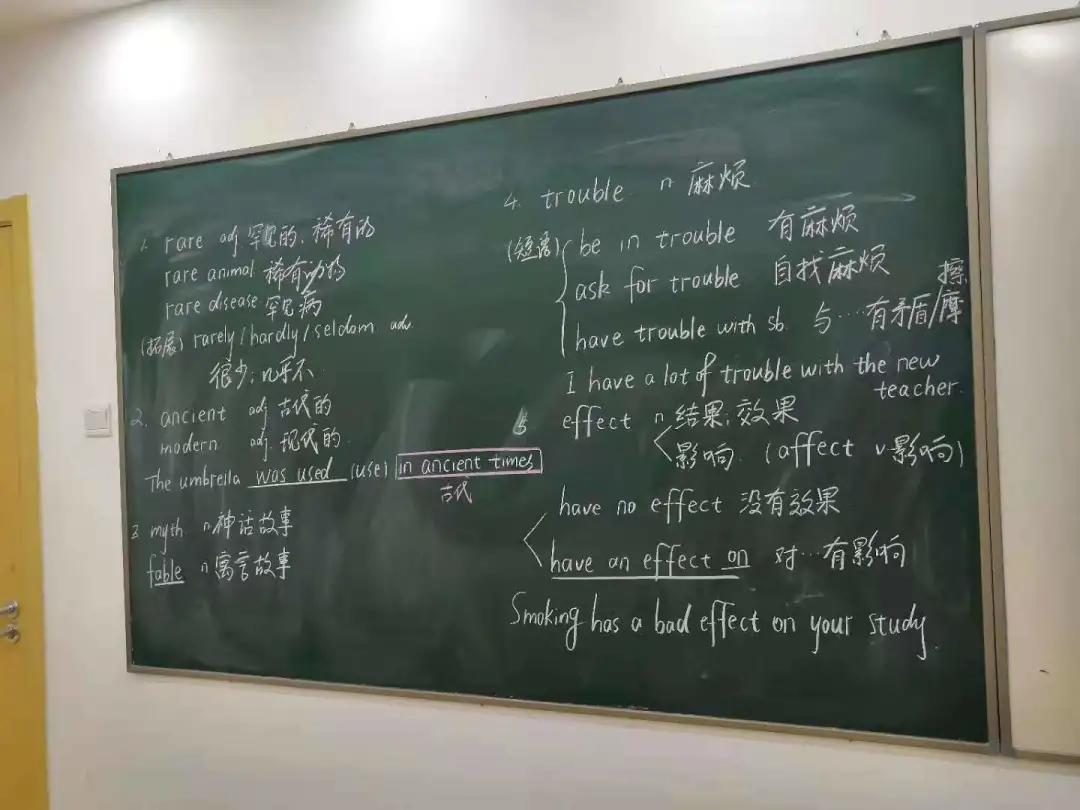 1. rare adj 罕见的、稀有的
rare animal 稀有动物
rare disease 罕见病
(拓展) rarely / hardly / seldom adv
很少; 几乎不
2. ancient adj 古代的
modern adj. 现代的
The umbrella was used (use) in ancient times
古代
3 myth n 神话故事
fable n 寓言故事
4. trouble n 麻烦
(短语) be in trouble 有麻烦
ask for trouble 自找麻烦
have trouble with sb. 与…有矛盾/摩擦
I have a lot of trouble with the new
teacher.
5 effect n 结果, 效果
影响. (affect v 影响)
have no effect 没有效果
have an effect on 对…有影响
Smoking has a bad effect on your study.